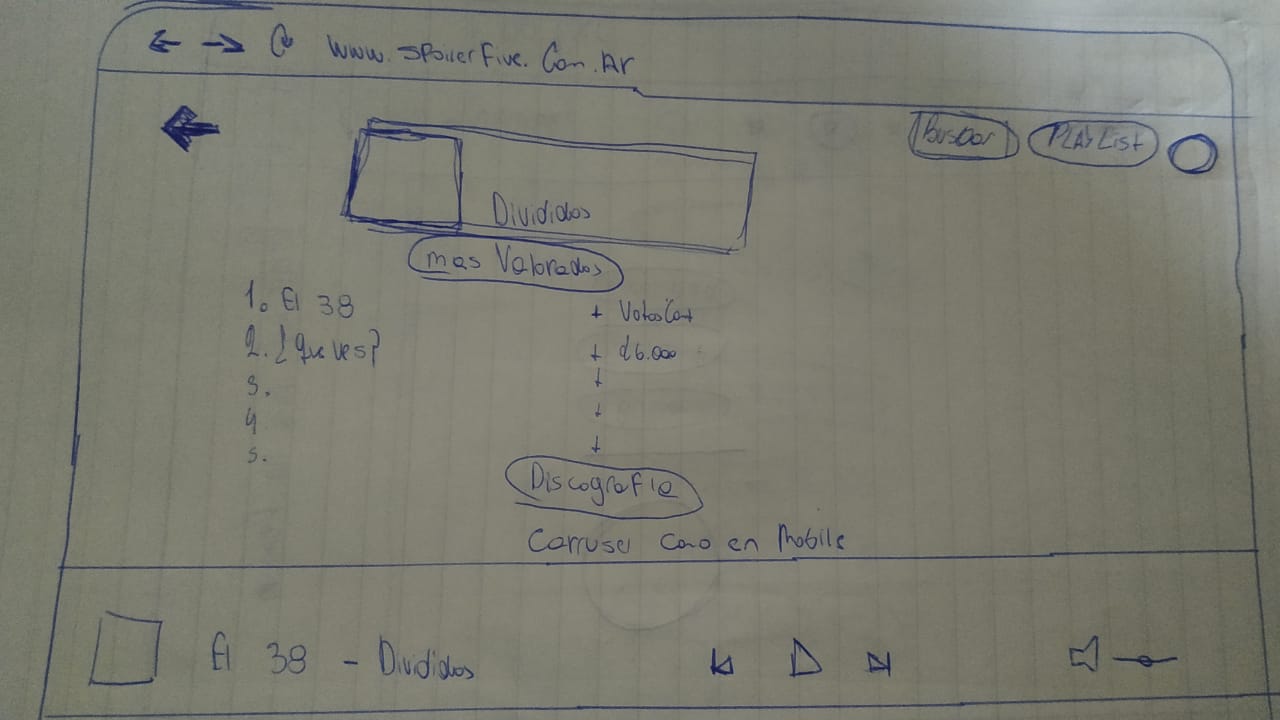 www.spoilerfive.com.Ar
Buscar PLAYList
Divididos
mas Valorados
1. El 38 + Votos Cant
2. ¿Que ves? + 26.000
3. +
4 +
5. +
Discografia
Carrusel Como en Mobile
El 38 - Divididos